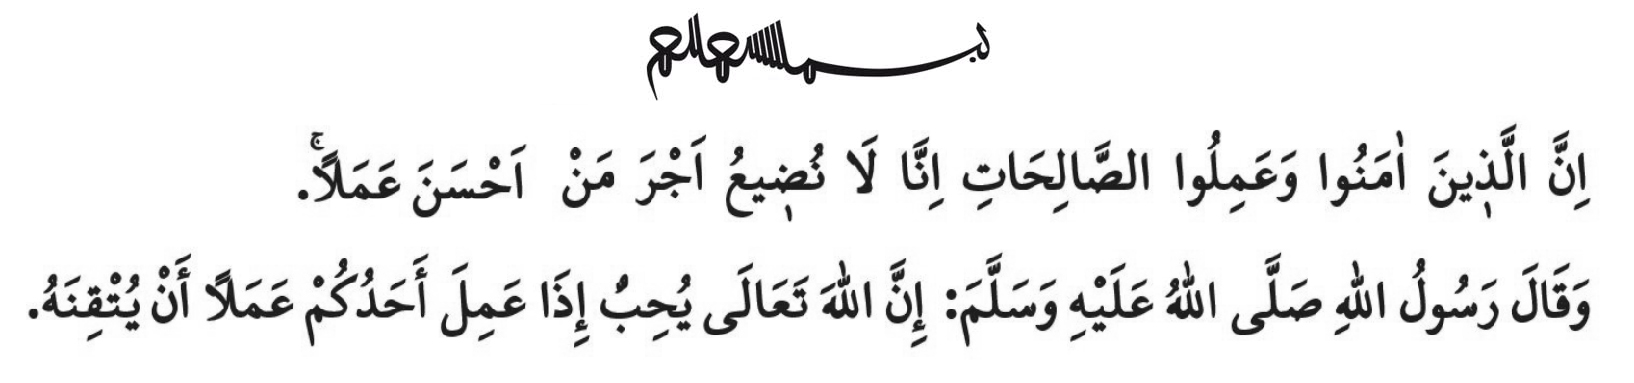 بسم الله الرحمن الرحيم
اِنَّ الَّذ۪ينَ اٰمَنُوا وَعَمِلُوا الصَّالِحَاتِ اِنَّا لَا نُض۪يعُ اَجْرَ مَنْ اَحْسَنَ عَمَلًاۚ.
وَقَالَ رَسُولُ اللهِ صَلَّى اللهُ عَلَيْهِ وَسَلَّمَ: إِنَّ اللهَ تَعَالَى يُحِبُّ إِذَا عَمِلَ أَحَدُكُمْ عَمَلًا أَنْ يُتْقِنَهُ.